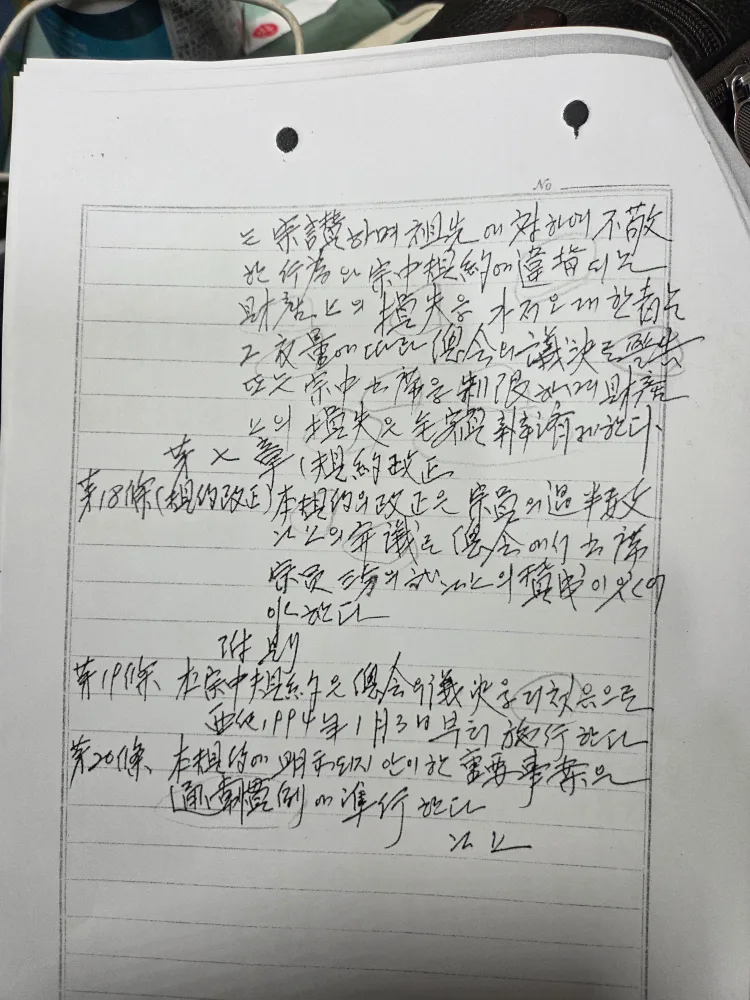 No
는 宗讚하며 祖先에 對하여 不敬
한 行為와 宗中規約에 違背되는
財産上의 損失을 가저오게 한者는
그 衣量에따라 總会의 議決로
또는 宗中 出席을 制限하며 財産
上의 損失은 全額 辨濟케한다.
第 X 章 (規約改正
第18條(規約改正) 本規約의 改正은 宗員의 過半數
以上의 로 總会에서 出席
宗員 三分의 以上의 賛成이 있어
야 한다
附則
第19條、本宗中規約은 總会의 議決을 으로
西紀1994年 1月3日부터 施行한다
第20條、本規約에 明示되지 안이한 重要事案은
例에 準行 한다
以上